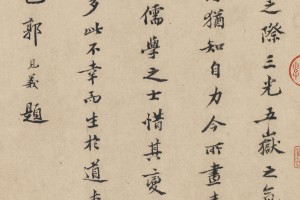 之際三光五嶽之氣
猶知自力今所畫
儒學之士惜其敻
多此不幸而生於道
郭見義題